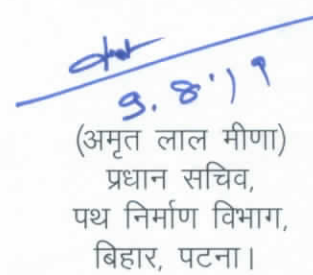 9.8'19
(अमृत लाल मीणा)
प्रधान सचिव,
पथ निर्माण विभाग,
बिहार, पटना।